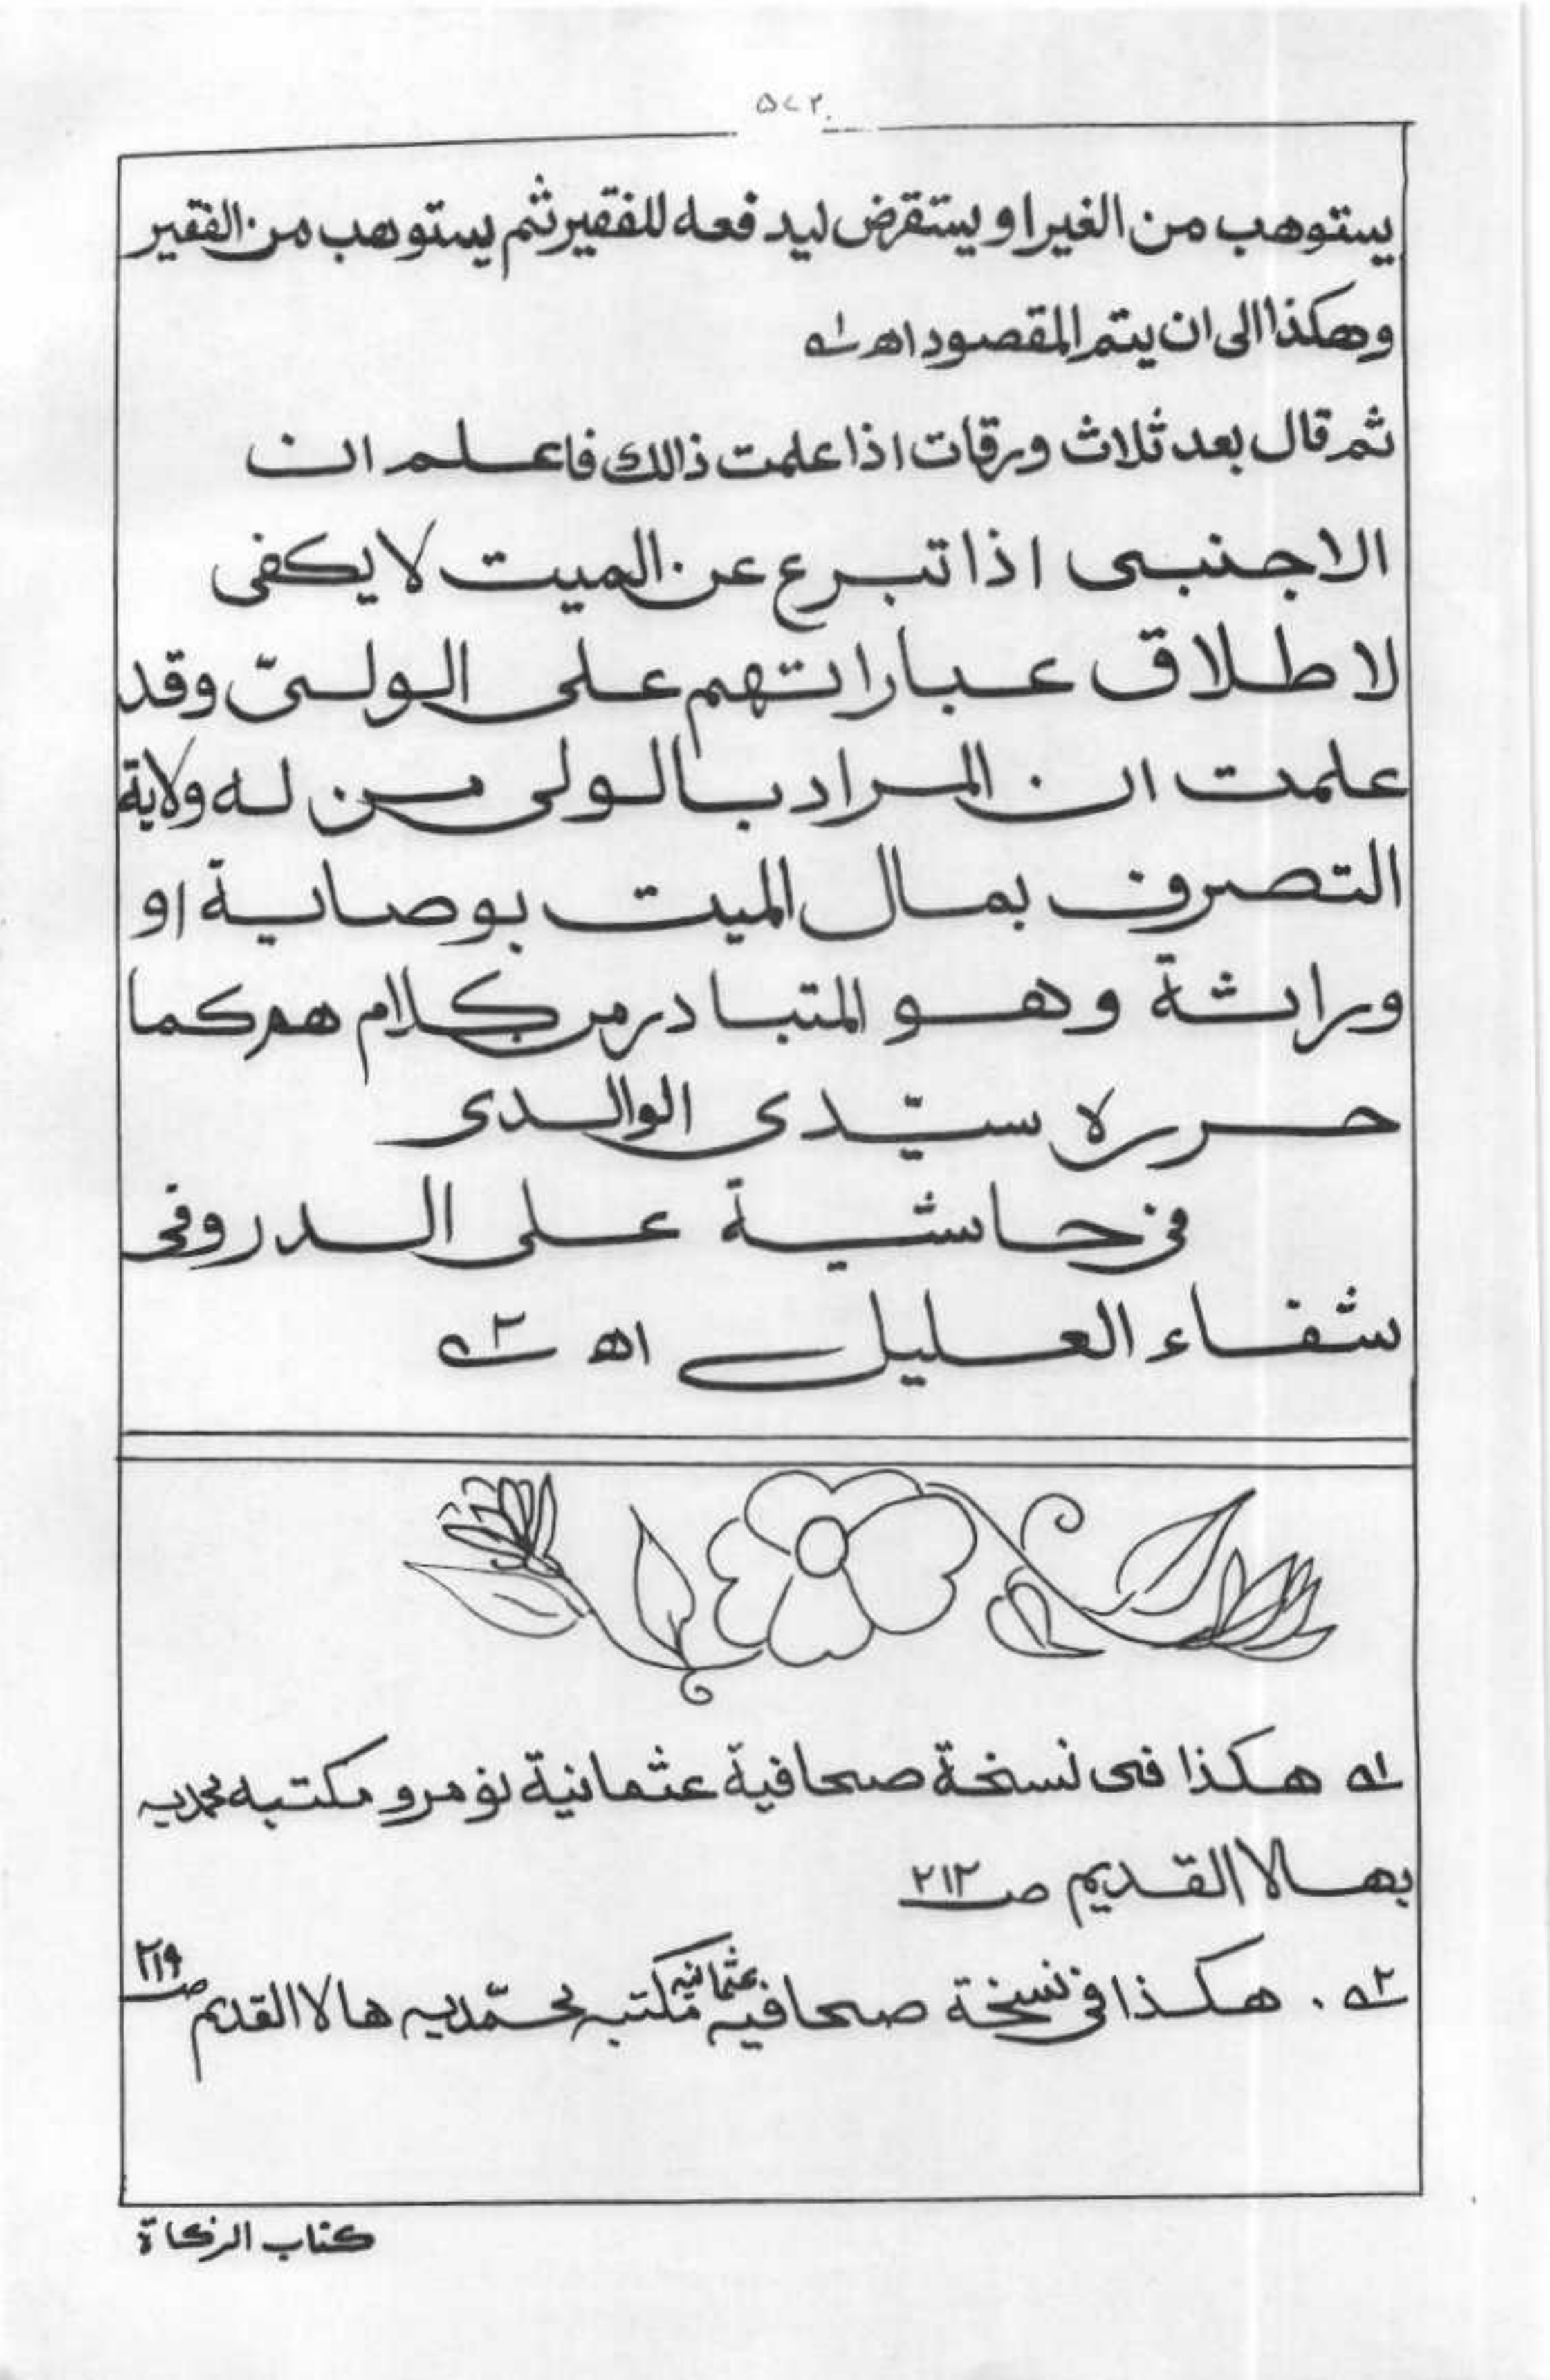 ۵۷۲
يستوهب من الغير او يستقرض ليدفعه للفقير ثم يستوهب من الفقير
وهكذا الى ان يتم المقصود اھ ؎۱
ثم قال بعد ثلاث ورقات اذا علمت ذالك فاعلم ان
الاجنبى اذا تبرع عن الميت لا يكفى
لاطلاق عباراتهم على الولىّ وقد
علمت ان المراد بالولى من له ولاية
التصرف بمال الميت بوصاية او
وراثة وهو المتبادر من كلامهم كما
حرره سيّدى الوالدى
فى حاشية على الدر وفى
شفاء العليل اھ ؎۲
؎۱ هكذا فى نسخة صحافية عثمانية نومرو مكتبه محمديه
بهالا القديم ص ۲۱۲
؎۲ . هكذا فى نسخة صحافيه عثمانيه مكتبه محمّديه هالا القديم ص ۲۱۹
كتاب الزكاة